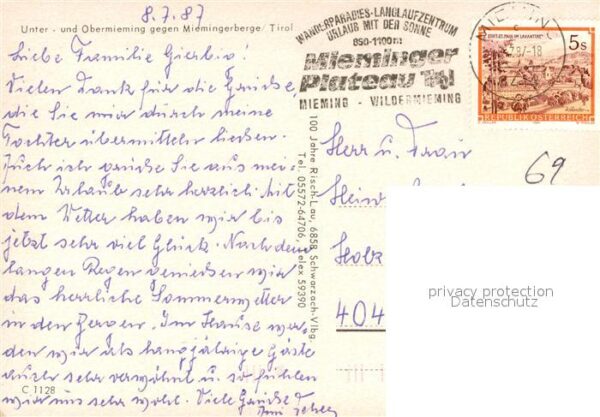 8.7.87
Unter - und Obermieming gegen Miemingerberge/ Tirol
Liebe Familie Gierbio!
Vielen Dank für die Grüße
die Sie mir durch meine
Tochter übermitteln ließen.
Auch ich grüße Sie aus mei-
nem Urlaub sehr herzlich. Mit
dem Wetter haben wir bis
jetzt sehr viel Glück. Nach dem
langen Regen genießen wir
das herrliche Sommerwetter
in den Bergen. Im Hause wer-
den wir als langjährige Gäste
auch sehr verwöhnt u. so fühlen
wir uns sehr wohl. Viele Grüße
C 1128
WANDERPARADIES-LANGLAUFZENTRUM
URLAUB MIT DER SONNE
850-1100m
Mieminger
Plateau Tirol
MIEMING - WILDERMIEMING
MIEMING
87-18
5s
REPUBLIK ÖSTERREICH
100 Jahre Risch-Lau, 6858 Schwarzach-Vlbg.
Tel. 05572-64706, Telex 59390
69
Herr u. Frau
Hein
Holz
404
privacy protection
Datenschutz